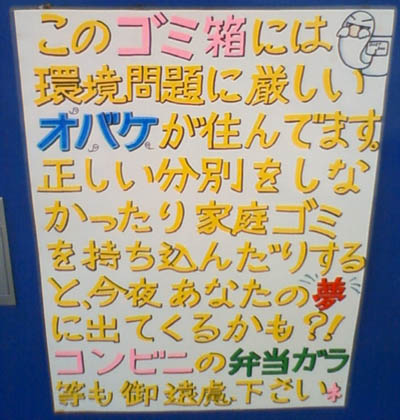 このゴミ箱には
環境問題に厳しい
オバケが住んでます。
正しい分別をしな
かったり家庭ゴミ
を持ち込んだりする
と、今夜あなたの夢
に出てくるかも?!
コンビニの弁当ガラ
等も御遠慮下さい